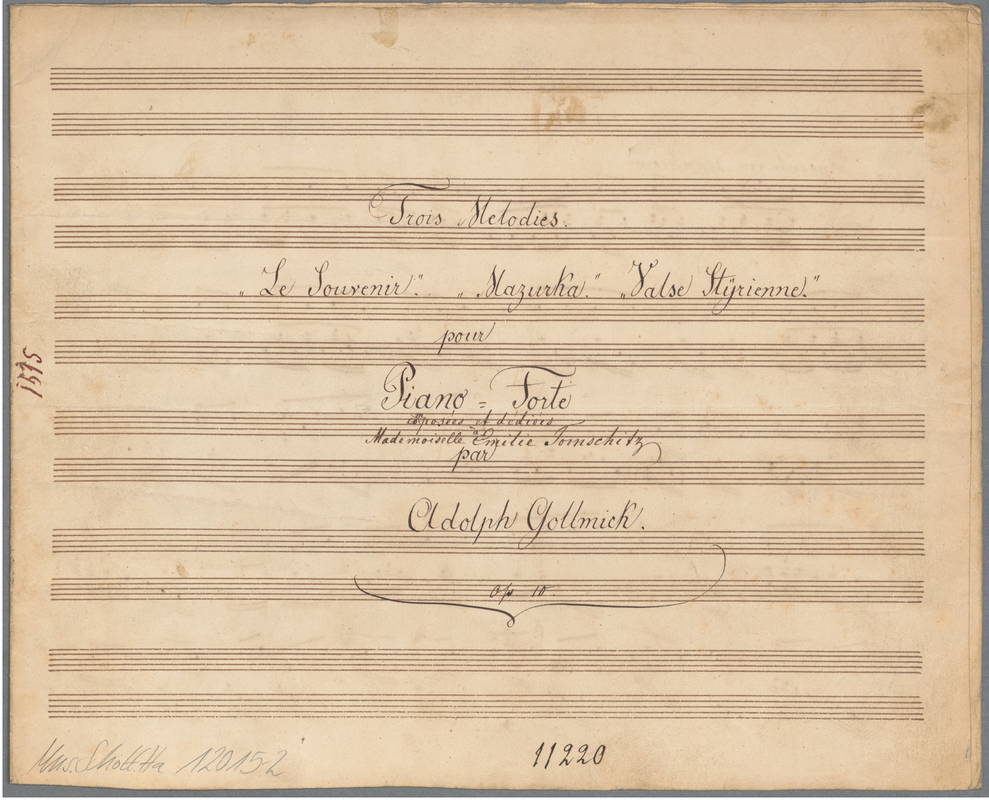 Trois Melodies.
„Le Souvenir." „Mazurka." „Valse Stÿrienne."
pour
Piano = Forte
et dediées
à
Mademoiselle Emilie Tomschitz
par
Adolph Gollmick.
Op 10
11220
Mus. Schott. Ha 12015-2